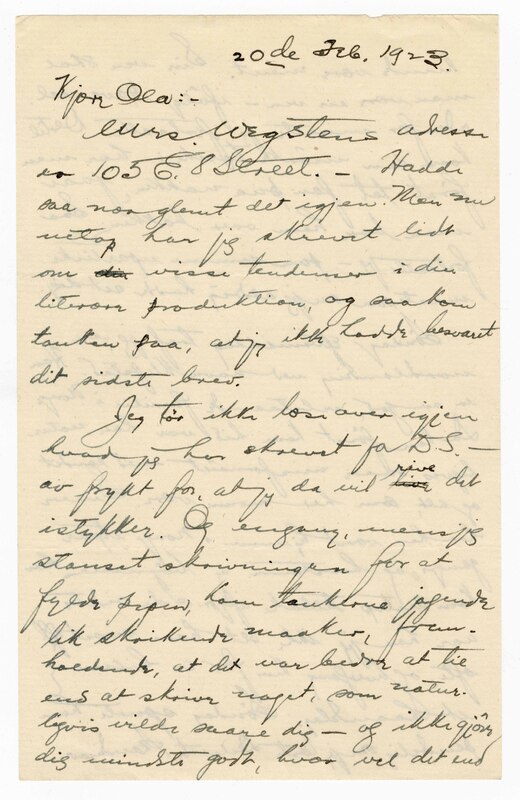 20de Feb. 1923.
Kjære Ola:-
Mrs. Wegstens adresse
er 105 E. 8 Street. - Hadde
saa nær glemt det igjen. Men nu
netop har jeg skrevet lidt
om visse tendenser i din
literære produktion, og saa kom
tanken paa, at jeg ikke hadde besvaret
dit sidste brev.
Jeg tør ikke læse over igjen
hvad jeg har skrevet fo D.S. -
av frykt for, at jeg da vil rive det
istykker. Og engang, mens jeg
stanset skrivningen for at
fylde pipen, kom tankerne jagende
lik skrikende maaker, frem-
holdende, at det var bedre at tie
end at skrive noget, som natur-
ligvis vilde saare dig - og ikke gjöre
dig mindste godt, hvor vel det end